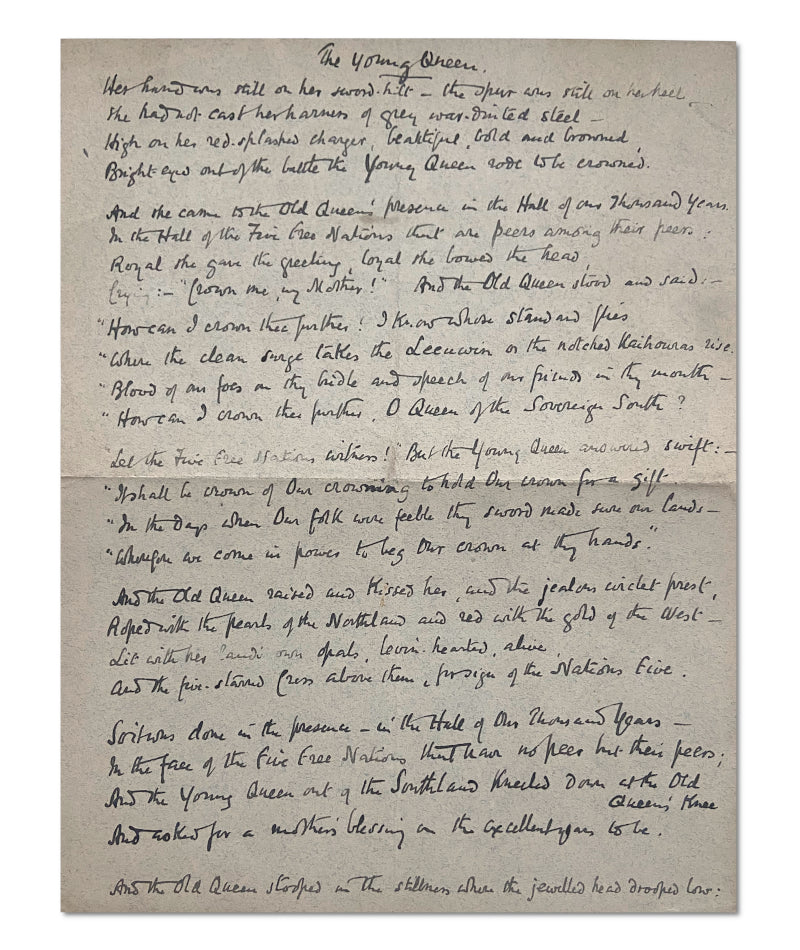 The Young Queen.
Her hand was still on her sword-hilt – the spur was still on her heel
She had not cast her harness of grey war-dinted steel –
High on her red-splashed charger, beautiful, bold and browned,
Bright-eyed out of the battle the Young Queen rode to be crowned.
And she came to the Old Queen's presence in the Hall of our Thousand Years.
In the Hall of the Five Free Nations that are peers among their peers:
Royal she gave the greeting, loyal she bowed the head,
Crying:– "Crown me, my Mother!" And the Old Queen stood and said:–
"How can I crown thee further? I know whose standard flies
"Where the clean surge takes the Leeuwin or the notched Kaikouras rise.
"Blood of our foes on thy bridle and speech of our friends in thy mouth –
"How can I crown thee further, O Queen of the Sovereign South?
"Let the Five Free Nations witness!" But the Young Queen answered swift:–
"It shall be crown of Our crowning to hold Our crown for a gift.
"In the Days when Our folk were feeble thy sword made sure our lands –
"Wherefore we come in power to beg Our crown at thy hands."
And the Old Queen raised and kissed her, and the jealous circlet prest,
Roped with the pearls of the Northland and red with the gold of the West –
Lit with her own opals, levin-hearted, alive,
And the five-starred Cross above them, for sign of the Nations Five.
So it was done in the presence – in the Hall of Our Thousand Years –
In the face of the Five Free Nations that have no peer but their peers;
And the Young Queen out of the Southland kneeled Down at the Old
Queen's Knee
And asked for a mother's blessing on the excellent years to be.
And the Old Queen stooped in the stillness where the jewelled head drooped low: